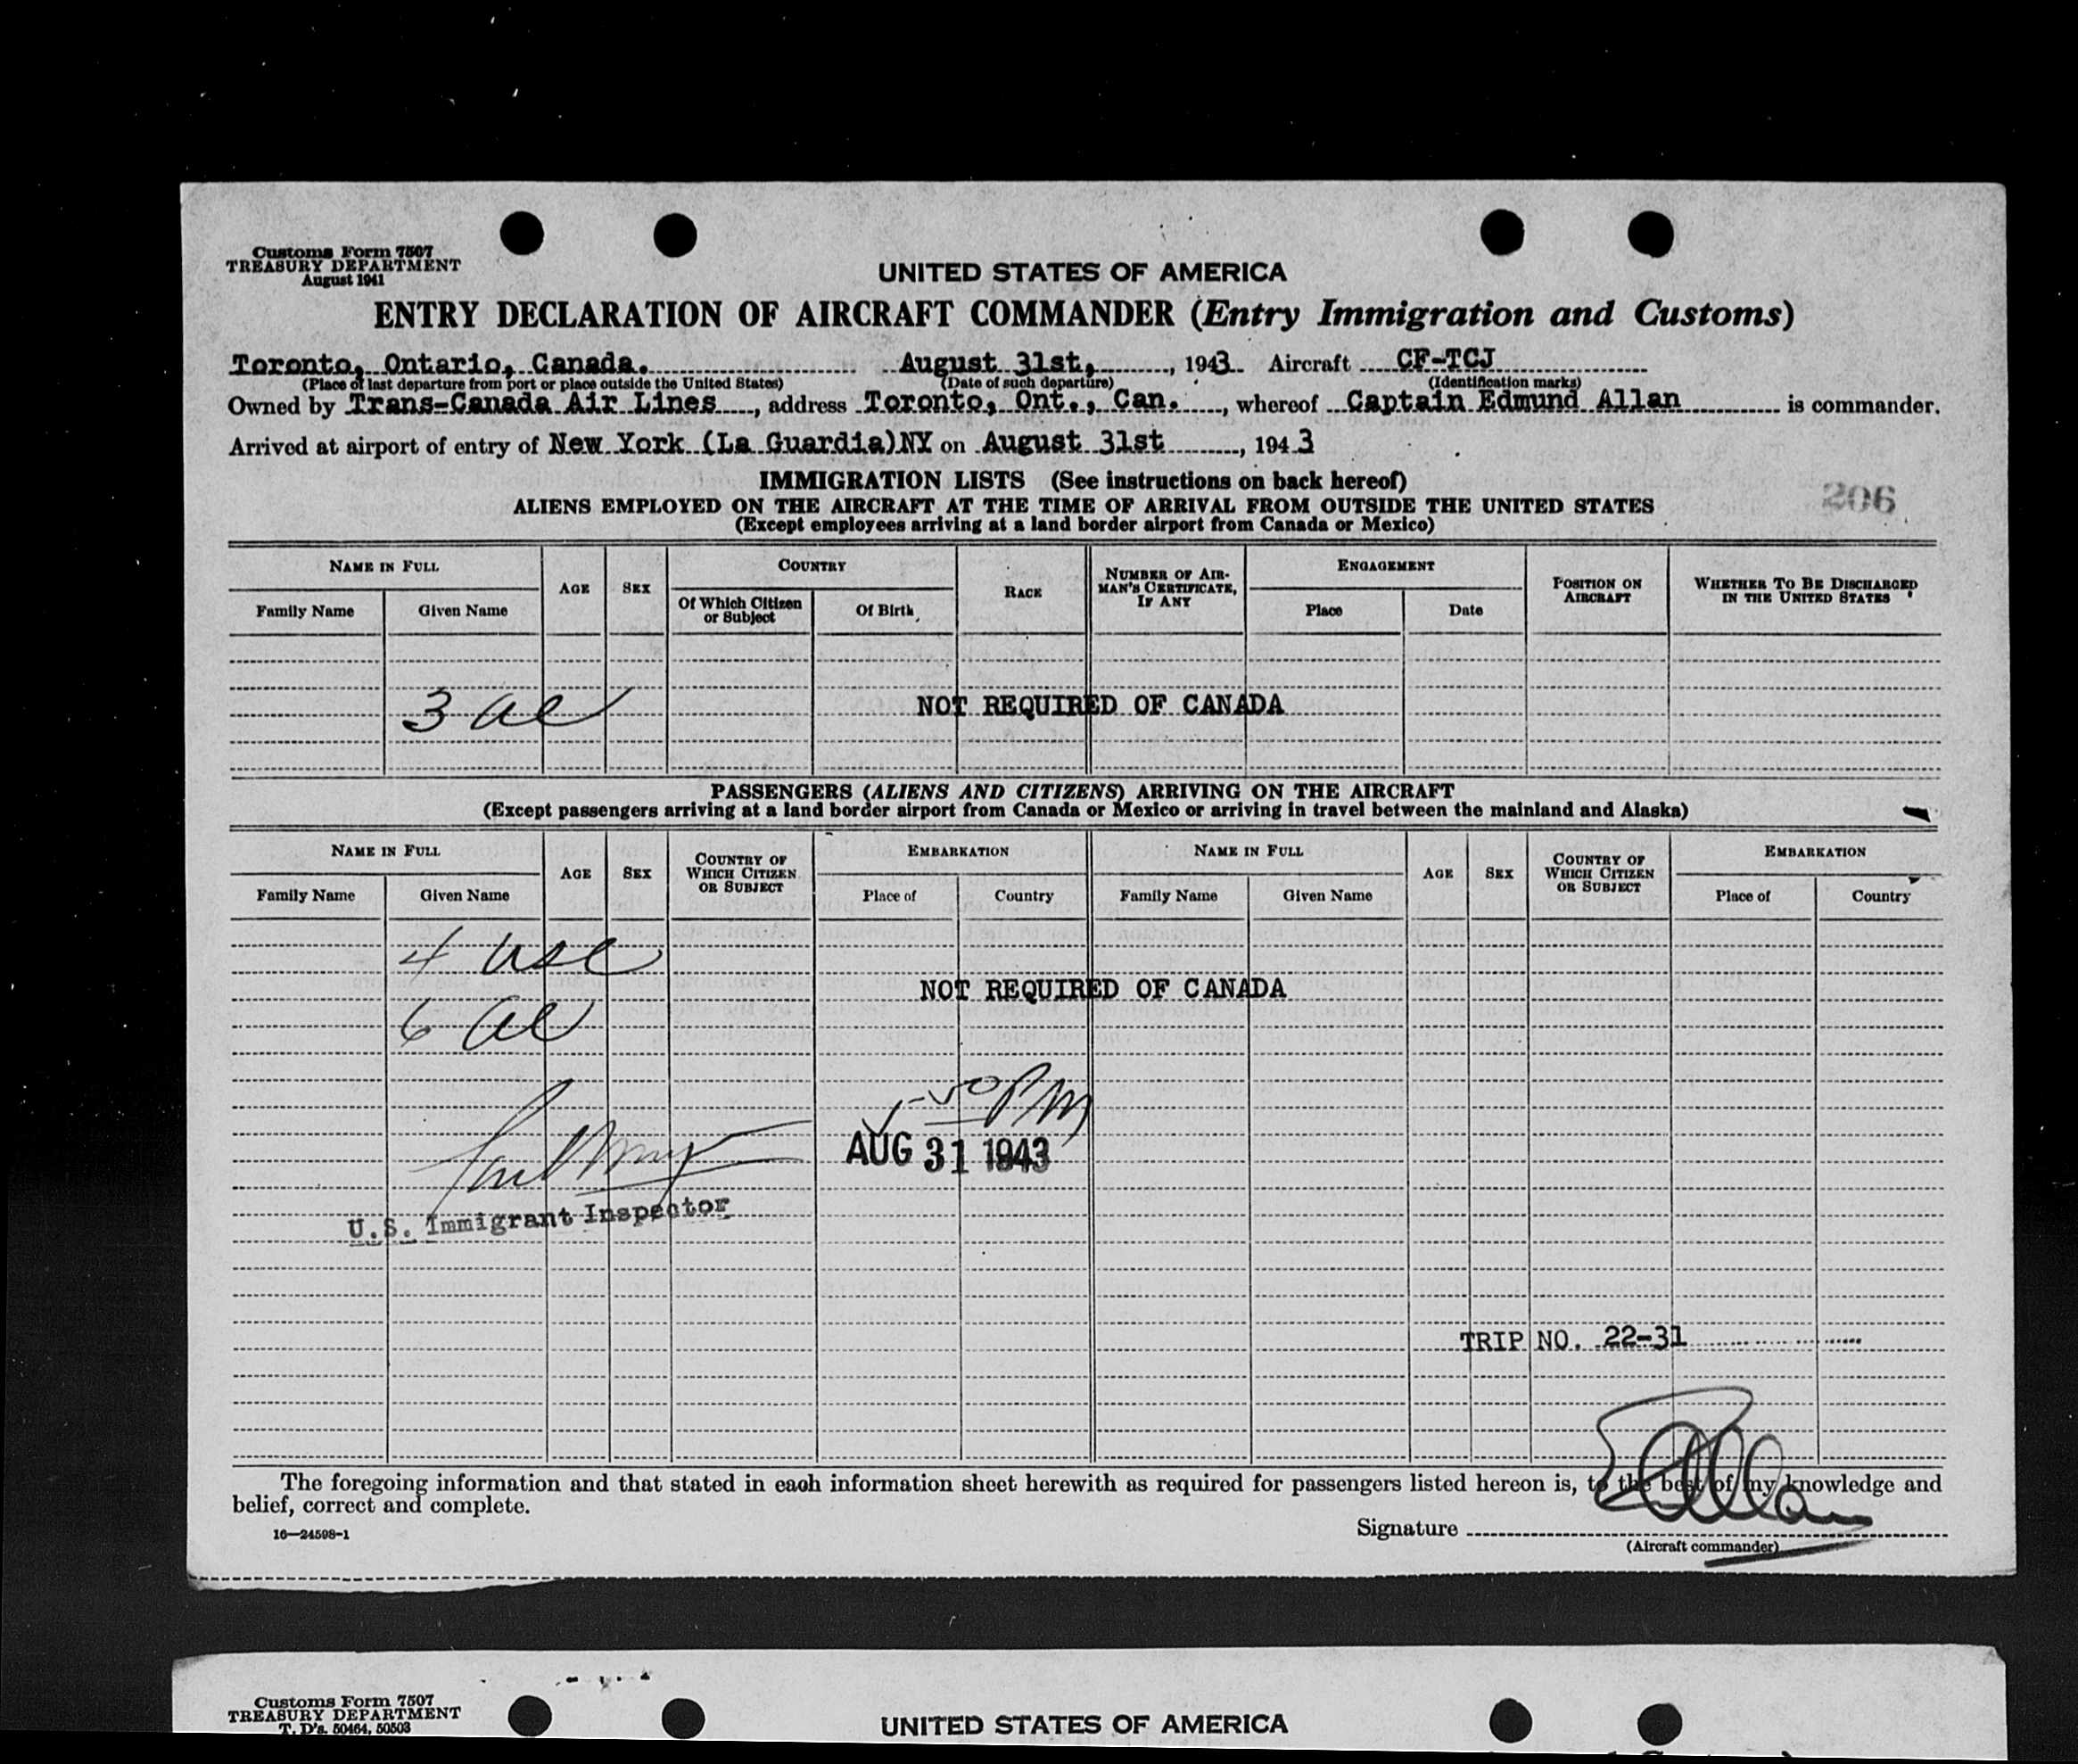 Customs Form 7507
TREASURY DEPARTMENT
August 1941
UNITED STATES OF AMERICA
ENTRY DECLARATION OF AIRCRAFT COMMANDER (Entry Immigration and Customs)
Toronto, Ontario, Canada. August 31st, , 1943 Aircraft CF-TCJ
(Place of last departure from port or place outside the United States) (Date of such departure) (Identification marks)
Owned by Trans-Canada Air Lines, address Toronto, Ont., Can., whereof Captain Edmund Allan is commander.
Arrived at airport of entry of New York (La Guardia)NY on August 31st, 1943
IMMIGRATION LISTS (See instructions on back hereof)
206
ALIENS EMPLOYED ON THE AIRCRAFT AT THE TIME OF ARRIVAL FROM OUTSIDE THE UNITED STATES
(Except employees arriving at a land border airport from Canada or Mexico)
NAME IN FULL AGE SEX COUNTRY RACE NUMBER OF AIRMAN'S CERTIFICATE, IF ANY ENGAGEMENT POSITION ON AIRCRAFT WHETHER TO BE DISCHARGED IN THE UNITED STATES
Family Name Given Name Of Which Citizen or Subject Of Birth Place Date
3 al NOT REQUIRED OF CANADA
PASSENGERS (ALIENS AND CITIZENS) ARRIVING ON THE AIRCRAFT
(Except passengers arriving at a land border airport from Canada or Mexico or arriving in travel between the mainland and Alaska)
NAME IN FULL AGE SEX COUNTRY OF WHICH CITIZEN OR SUBJECT EMBARKATION NAME IN FULL AGE SEX COUNTRY OF WHICH CITIZEN OR SUBJECT EMBARKATION
Family Name Given Name Place of Country Family Name Given Name Place of Country
4 usc
NOT REQUIRED OF CANADA
6 al
PM
AUG 31 1943
U.S. Immigrant Inspector
TRIP NO. 22-31
The foregoing information and that stated in each information sheet herewith as required for passengers listed hereon is, to the best of my knowledge and
belief, correct and complete.
16—24598-1
Signature E Allan
(Aircraft commander)
Customs Form 7507
TREASURY DEPARTMENT
T. D's. 50464, 50503
UNITED STATES OF AMERICA